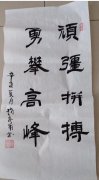 頑強拼搏
勇攀高峰